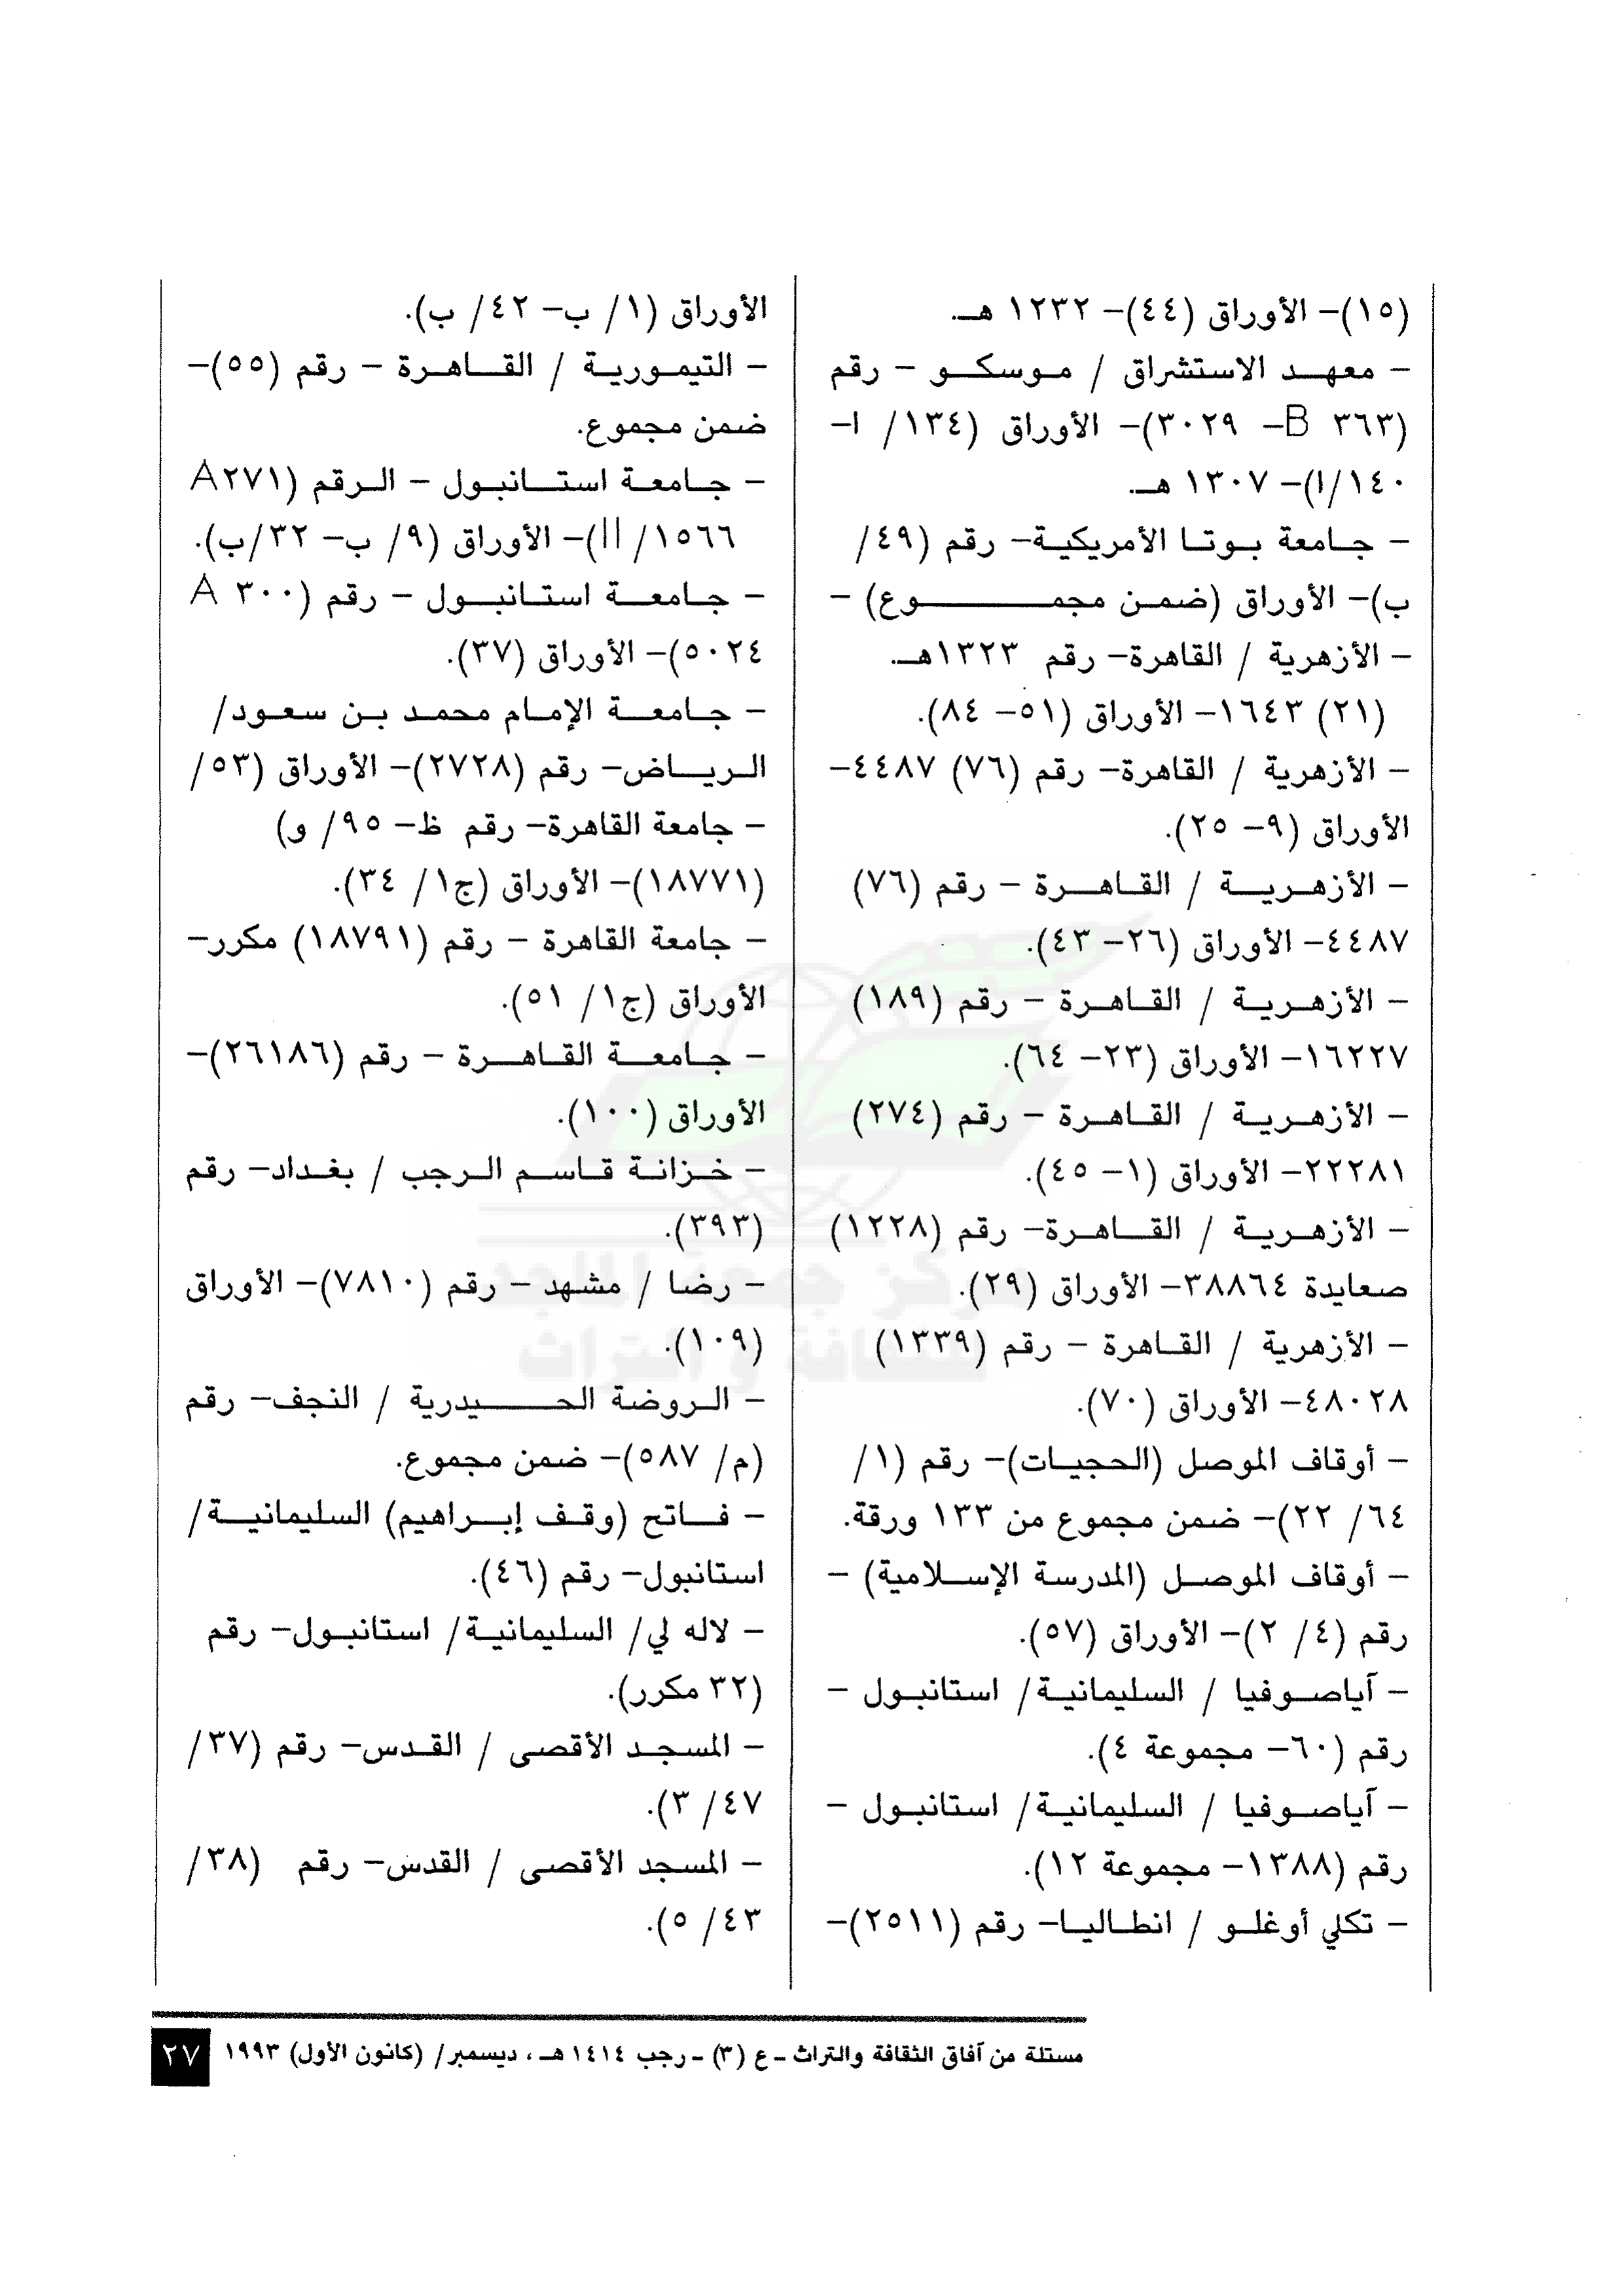 (١٥)– الأوراق (٤٤)– ١٢٣٢ هـ.
– معهد الاستشراق / موسكو – رقم
(٣٦٣ B – ٣٠٢٩)– الأوراق (١٣٤/ ا–
١٤٠/ا)– ١٣٠٧ هـ.
– جامعة بوتا الأمريكية– رقم (٤٩/
ب)– الأوراق (ضمن مجموع) –
– الأزهرية / القاهرة– رقم ١٣٢٣هـ.
(٢١) ١٦٤٣– الأوراق (٥١– ٨٤).
– الأزهرية / القاهرة– رقم (٧٦) ٤٤٨٧–
الأوراق (٩– ٢٥).
– الأزهرية / القاهرة – رقم (٧٦)
٤٤٨٧– الأوراق (٢٦– ٤٣).
– الأزهرية / القاهرة – رقم (١٨٩)
١٦٢٢٧– الأوراق (٢٣– ٦٤).
– الأزهرية / القاهرة – رقم (٢٧٤)
٢٢٢٨١– الأوراق (١– ٤٥).
– الأزهرية / القاهرة– رقم (١٢٢٨)
صعايدة ٣٨٨٦٤– الأوراق (٢٩).
– الأزهرية / القاهرة – رقم (١٣٣٩)
٤٨٠٢٨– الأوراق (٧٠).
– أوقاف الموصل (الحجيات)– رقم (١/
٦٤/ ٢٢)– ضمن مجموع من ١٣٣ ورقة.
– أوقاف الموصل (المدرسة الإسلامية) –
رقم (٤/ ٢)– الأوراق (٥٧).
– آياصوفيا / السليمانية/ استانبول –
رقم (٦٠– مجموعة ٤).
– آياصوفيا / السليمانية/ استانبول –
رقم (١٣٨٨– مجموعة ١٢).
– تكلي أوغلو / انطاليا– رقم (٢٥١١)–
الأوراق (١/ ب– ٤٢/ ب).
– التيمورية / القاهرة – رقم (٥٥)–
ضمن مجموع.
– جامعة استانبول – الرقم (A٢٧١
١٥٦٦/ II)– الأوراق (٩/ ب– ٣٢/ب).
– جامعة استانبول – رقم (A ٣٠٠
٥٠٢٤)– الأوراق (٣٧).
– جامعة الإمام محمد بن سعود/
الرياض– رقم (٢٧٢٨)– الأوراق (٥٣/
– جامعة القاهرة– رقم ظ– ٩٥/ و)
(١٨٧٧١)– الأوراق (ج١/ ٣٤).
– جامعة القاهرة – رقم (١٨٧٩١) مكرر–
الأوراق (ج١/ ٥١).
– جامعة القاهرة – رقم (٢٦١٨٦)–
الأوراق (١٠٠).
– خزانة قاسم الرجب / بغداد– رقم
(٣٩٣).
– رضا / مشهد – رقم (٧٨١٠)– الأوراق
(١٠٩).
– الروضة الحيدرية / النجف– رقم
(م/ ٥٨٧)– ضمن مجموع.
– فاتح (وقف إبراهيم) السليمانية/
استانبول– رقم (٤٦).
– لاله لي/ السليمانية/ استانبول– رقم
(٣٢ مكرر).
– المسجد الأقصى / القدس– رقم (٣٧/
٤٧/ ٣).
– المسجد الأقصى / القدس– رقم (٣٨/
٤٣/ ٥).
مركز جمعة الماجد
للثقافة والتراث
مستلة من آفاق الثقافة والتراث ـ ع (٣) ـ رجب ١٤١٤ هـ ، ديسمبر/ (كانون الأول) ١٩٩٣ ٢٧